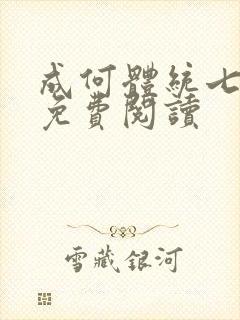 成何體統七
免費閱讀
雪藏銀河